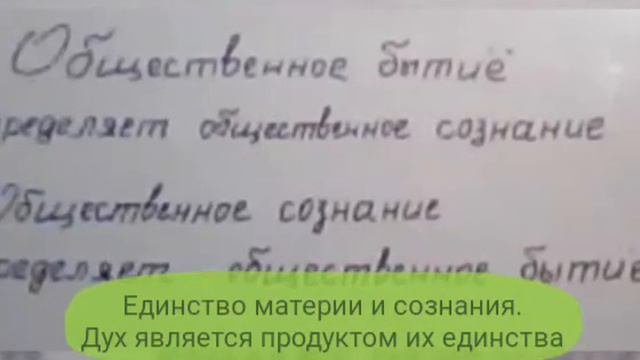 Общественное бытиё
пределяет общественное сознание
Общественное сознание
ределяет общественное бытиё
Единство материи и сознания.
Дух является продуктом их единства